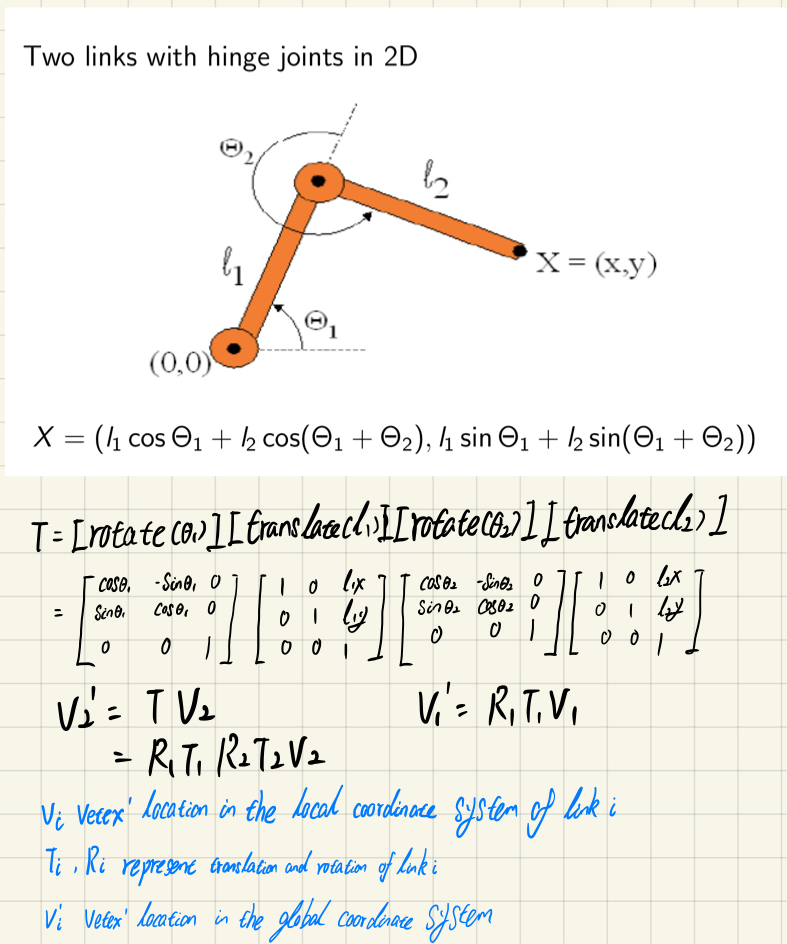 Two links with hinge joints in 2D
Θ₂
l₂
l₁
X = (x,y)
Θ₁
(0,0)
X = (l₁ cos Θ₁ + l₂ cos(Θ₁ + Θ₂), l₁ sin Θ₁ + l₂ sin(Θ₁ + Θ₂))
T = [rotate(θ₁)][translate(l₁)][rotate(θ₂)][translate(l₂)]
= [cosθ₁ -sinθ₁ 0] [1 0 l₁x] [cosθ₂ -sinθ₂ 0] [1 0 l₂x]
[sinθ₁ cosθ₁ 0] [0 1 l₁y] [sinθ₂ cosθ₂ 0] [0 1 l₂y]
[0 0 1] [0 0 1] [0 0 1] [0 0 1]
V₂' = T V₂ V₁' = R₁T₁V₁
= R₁T₁ R₂T₂V₂
Vi Vetex' location in the local coordinate system of link i
Ti , Ri represent translation and rotation of link i
Vi' Vetex' location in the global coordinate system